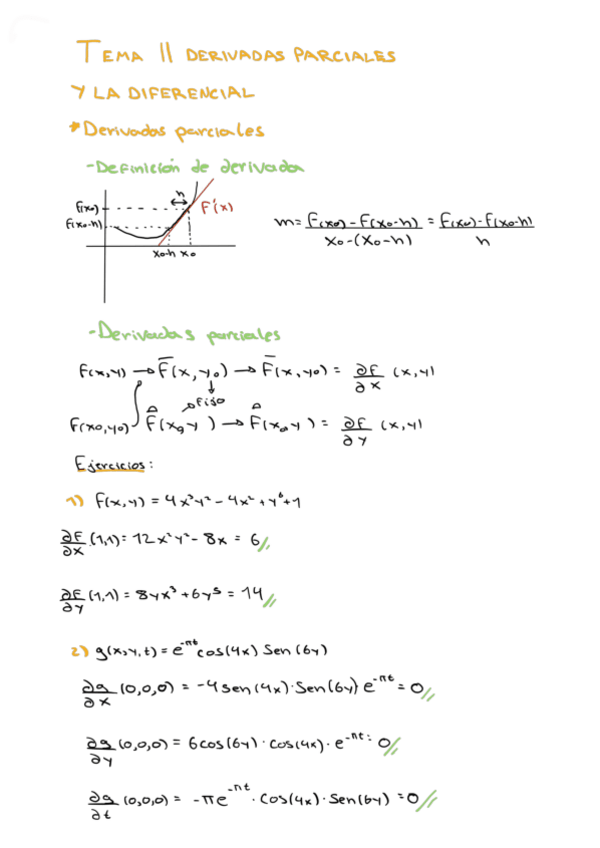 TEMA 11 DERIVADAS PARCIALES
Y LA DIFERENCIAL
*Derivadas parciales
-Definición de derivada
h
F(x0)
F(x0-h)
F'(x)
x0-h x0
m = F(x0)-F(x0-h) / x0-(x0-h) = F(x0)-F(x0-h) / h
-Derivadas parciales
F(x,y) → F̄(x,y0) → F̄(x,y0) = ∂F/∂x (x,y)
Fijo
F(x0,y0) F̂(x0,y) → F̂(x0,y) = ∂F/∂y (x,y)
Ejercicios:
1) F(x,y) = 4x³y² - 4x² + y⁶ + 1
∂F/∂x (1,1) = 12x²y² - 8x = 6//
∂F/∂y (1,1) = 8yx³ + 6y⁵ = 14//
2) g(x,y,t) = e^-πt cos(4x) Sen(6y)
∂g/∂x (0,0,0) = -4sen(4x)·Sen(6y) e^-πt = 0//
∂g/∂y (0,0,0) = 6cos(6y)·cos(4x)·e^-πt = 0//
∂g/∂t (0,0,0) = -πe^-πt · cos(4x)·Sen(6y) = 0//